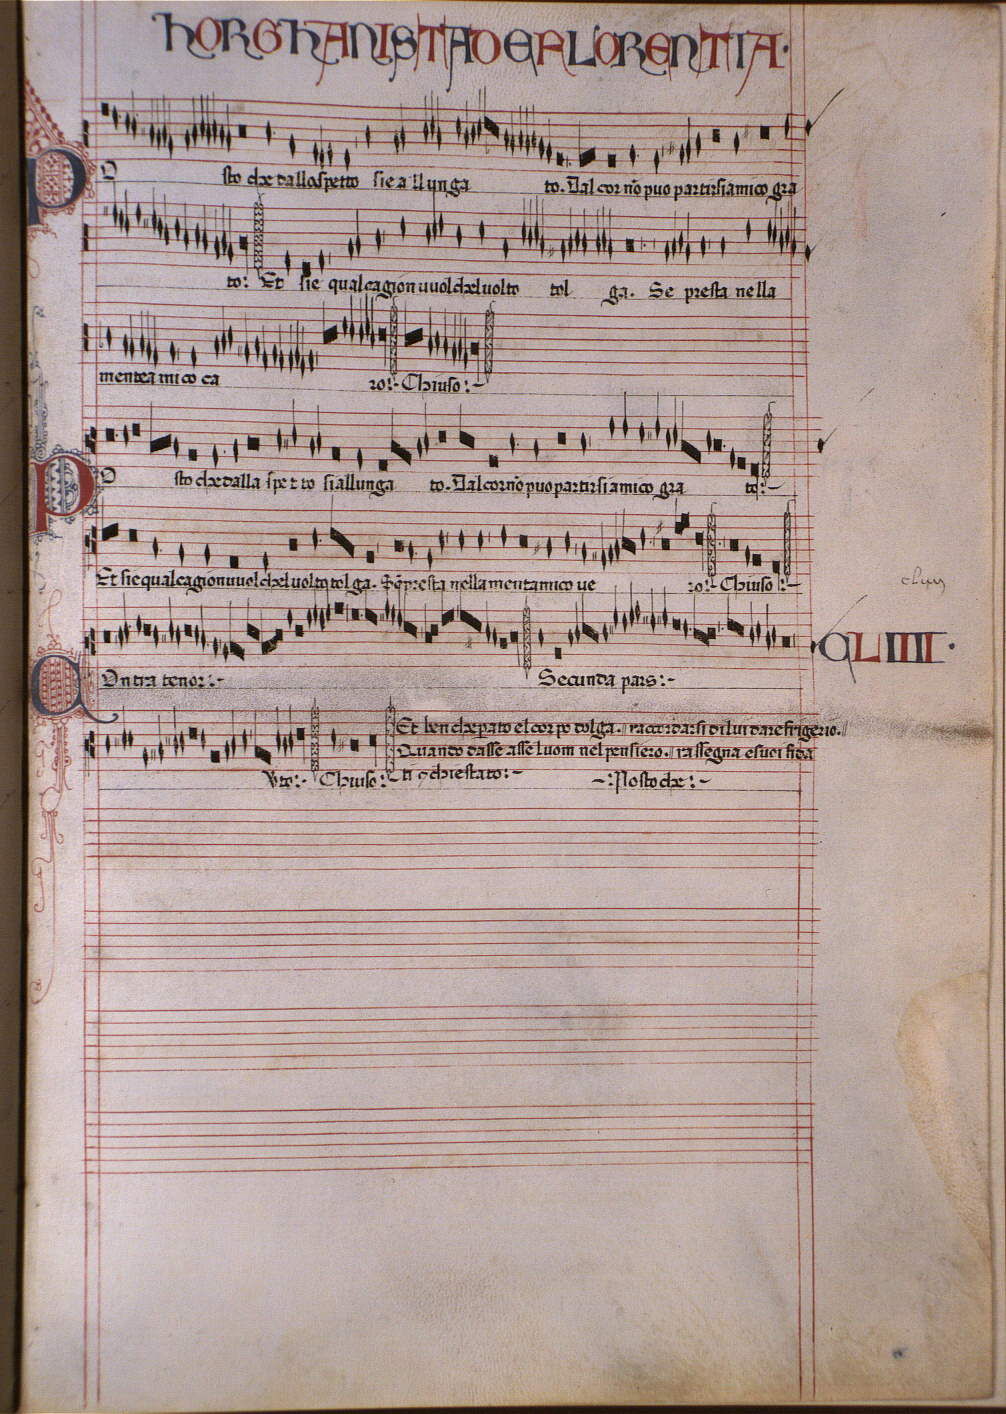 HORGHANISTA DE FLORENTIA·
Po sto che dallo spetto sie allunga to. Dal cor nō puo partirsi amico gra
to: Et sie qual cagion vuol chel volto tol ga. Se presta nella
mente amico ca
ro:- Chiuso:-
Po sto che dalla spe t to si allunga to. Dal cor nō puo partirsi amico gra to:-
Et sie qual cagion vuol chel volto tol ga. presta nella mente amico ue ro:- Chiuso:-
CLIIII·
Contra tenor:- Secunda pars:-
Et ben che pato el corpo dolga. raccordarsi di lui dare frigerio.
Quando dasse asse luom nel pensiero. rassegna e suoi fida
Vto:- Chiuso:- ti chiestato:- -:Posto che:-